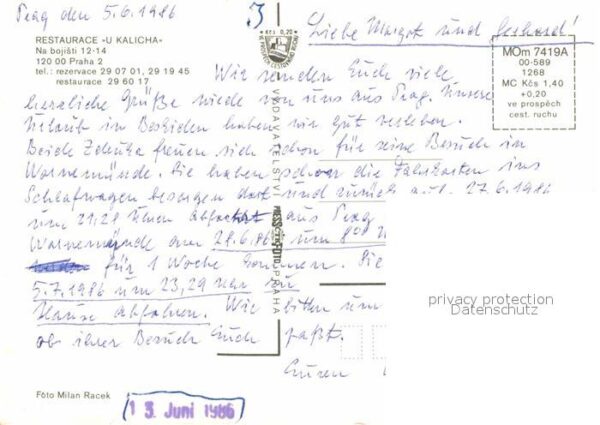 Prag den 5.6.1986
3
RESTAURACE »U KALICHA«
Na bojišti 12-14
120 00 Praha 2
tel.: rezervace 29 07 01, 29 19 45
restaurace 29 60 17
Kčs 0,20
VE PROSPĚCH CESTOVNÍHO RUCHU
Liebe Margot und Gerhard!
MOm 7419A
00-589
1268
MC Kčs 1,40
+0,20
ve prospěch
cest. ruchu
Wir senden Euch viele
herzliche Grüße wieder von uns aus Prag. Unsere
Urlaub in Beskiden haben wir gut verleben.
Beide Zdenka freuen sich schon für seine Besuch in
Warnemünde. Sie haben schon die Fahrkarten ins
Schlafwagen besorgen dort und zurück 27.6.1986
um 21,28 Uhr aus Prag
Warnemünde am 28.6.86 um 8
für 1 Woche kommen. Sie
5.7.1986 um 23,29 Uhr zu
Hause abfahren. Wir bitten um
ob ihrer Besuch Euch paßt.
Euren
VYDAVATELSTVÍ PRESSFOTO PRAHA
privacy protection
Datenschutz
Foto Milan Racek
13. Juni 1986